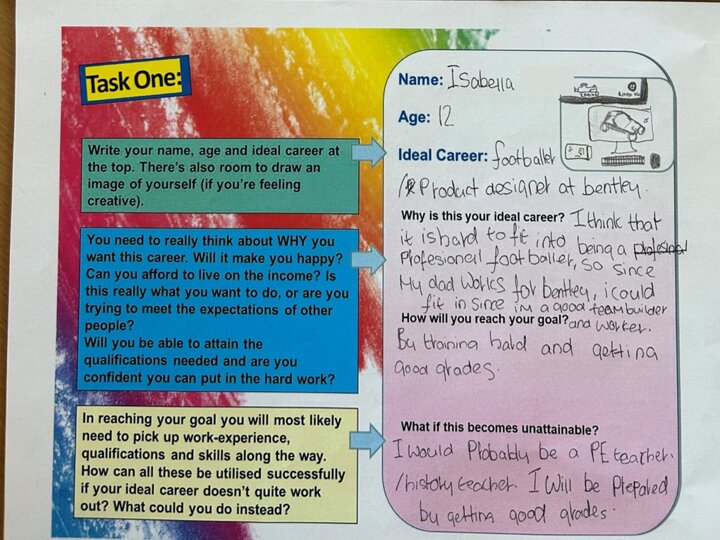 Task One:
Write your name, age and ideal career at
the top. There's also room to draw an
image of yourself (if you're feeling
creative).
You need to really think about WHY you
want this career. Will it make you happy?
Can you afford to live on the income? Is
this really what you want to do, or are you
trying to meet the expectations of other
people?
Will you be able to attain the
qualifications needed and are you
confident you can put in the hard work?
In reaching your goal you will most likely
need to pick up work-experience,
qualifications and skills along the way.
How can all these be utilised successfully
if your ideal career doesn't quite work
out? What could you do instead?
Name: Isabella
Age: 12
Ideal Career: footballer
/Product designer at bentley.
Why is this your ideal career? I think that
it is hard to fit into being a
Profesional footballer, so since
My dad works for bentley, i could
fit in since im a good team builder
and worker.
How will you reach your goal?
By training hard and getting
good grades.
What if this becomes unattainable?
I would Probably be a PE teacher.
/history teacher. I will be prepared
by getting good grades.